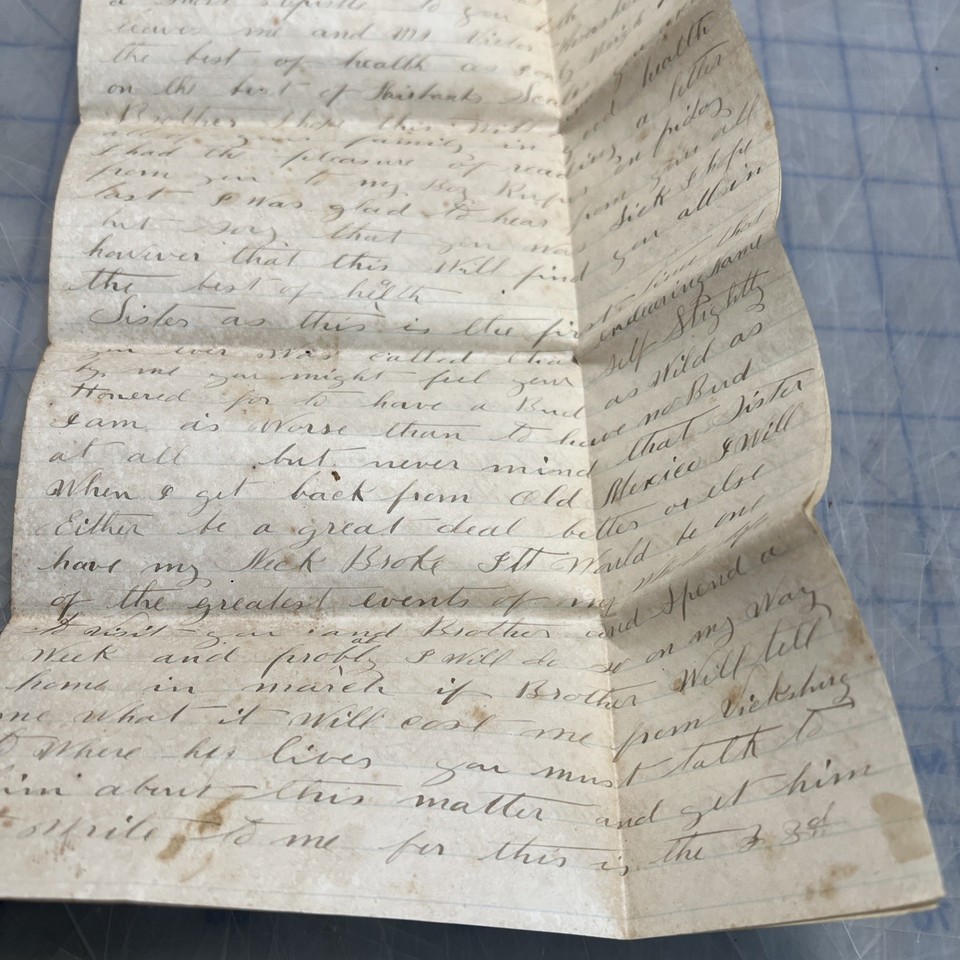 a short epistle to you
leaves me and Mr
the best of health as
on the best of Fairbanks Scales good health
Brother I hope this will find
all of your family in good
I had the pleasure of reading a letter
from you to my Boy on friday
last I was glad to hear from you all
but sory that you was Sick I hope
however that this Will find you all in
the best of helth
Sister as this is the first time that
you ever was called that endearing name
by me you might feel your self Slightly
Honered for to have a Bud as Wild as
I am is Worse than to have no Bud
at all but never mind that Sister
When I get back from Old Mexico I Will
Either be a great deal better or else
have my Neck Broke Itt Would be one
of the greatest events of my
to visit you and Brother and Spend a
Week and probly I Will do so on my Way
home in march if Brother Will tell
me what it Will cost me from Vicksburg
to Where he lives you must talk to
him about this matter and get him
to Write to me for this is the 3 3d